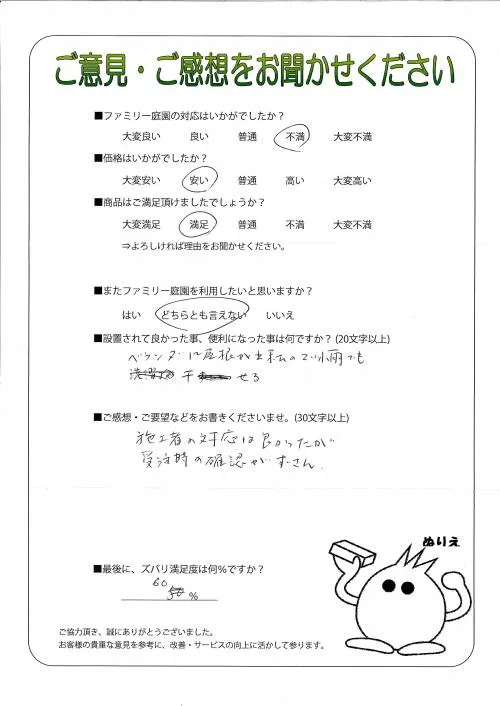 ご意見・ご感想をお聞かせください
■ファミリー庭園の対応はいかがでしたか？
大変良い 良い 普通 不満 大変不満
■価格はいかがでしたか？
大変安い 安い 普通 高い 大変高い
■商品はご満足頂けましたでしょうか？
大変満足 満足 普通 不満 大変不満
⇒よろしければ理由をお聞かせください。
■またファミリー庭園を利用したいと思いますか？
はい どちらとも言えない いいえ
■設置されて良かった事、便利になった事は何ですか？(20文字以上)
ベランダに屋根が出来たので小雨でも
干せる
■ご感想・ご要望などをお書きくださいませ。(30文字以上)
施工者の対応は良かったが
受注時の確認がずさん。
ぬりえ
■最後に、ズバリ満足度は何%ですか？
60
%
ご協力頂き、誠にありがとうございました。
お客様の貴重な意見を参考に、改善・サービスの向上に活かして参ります。